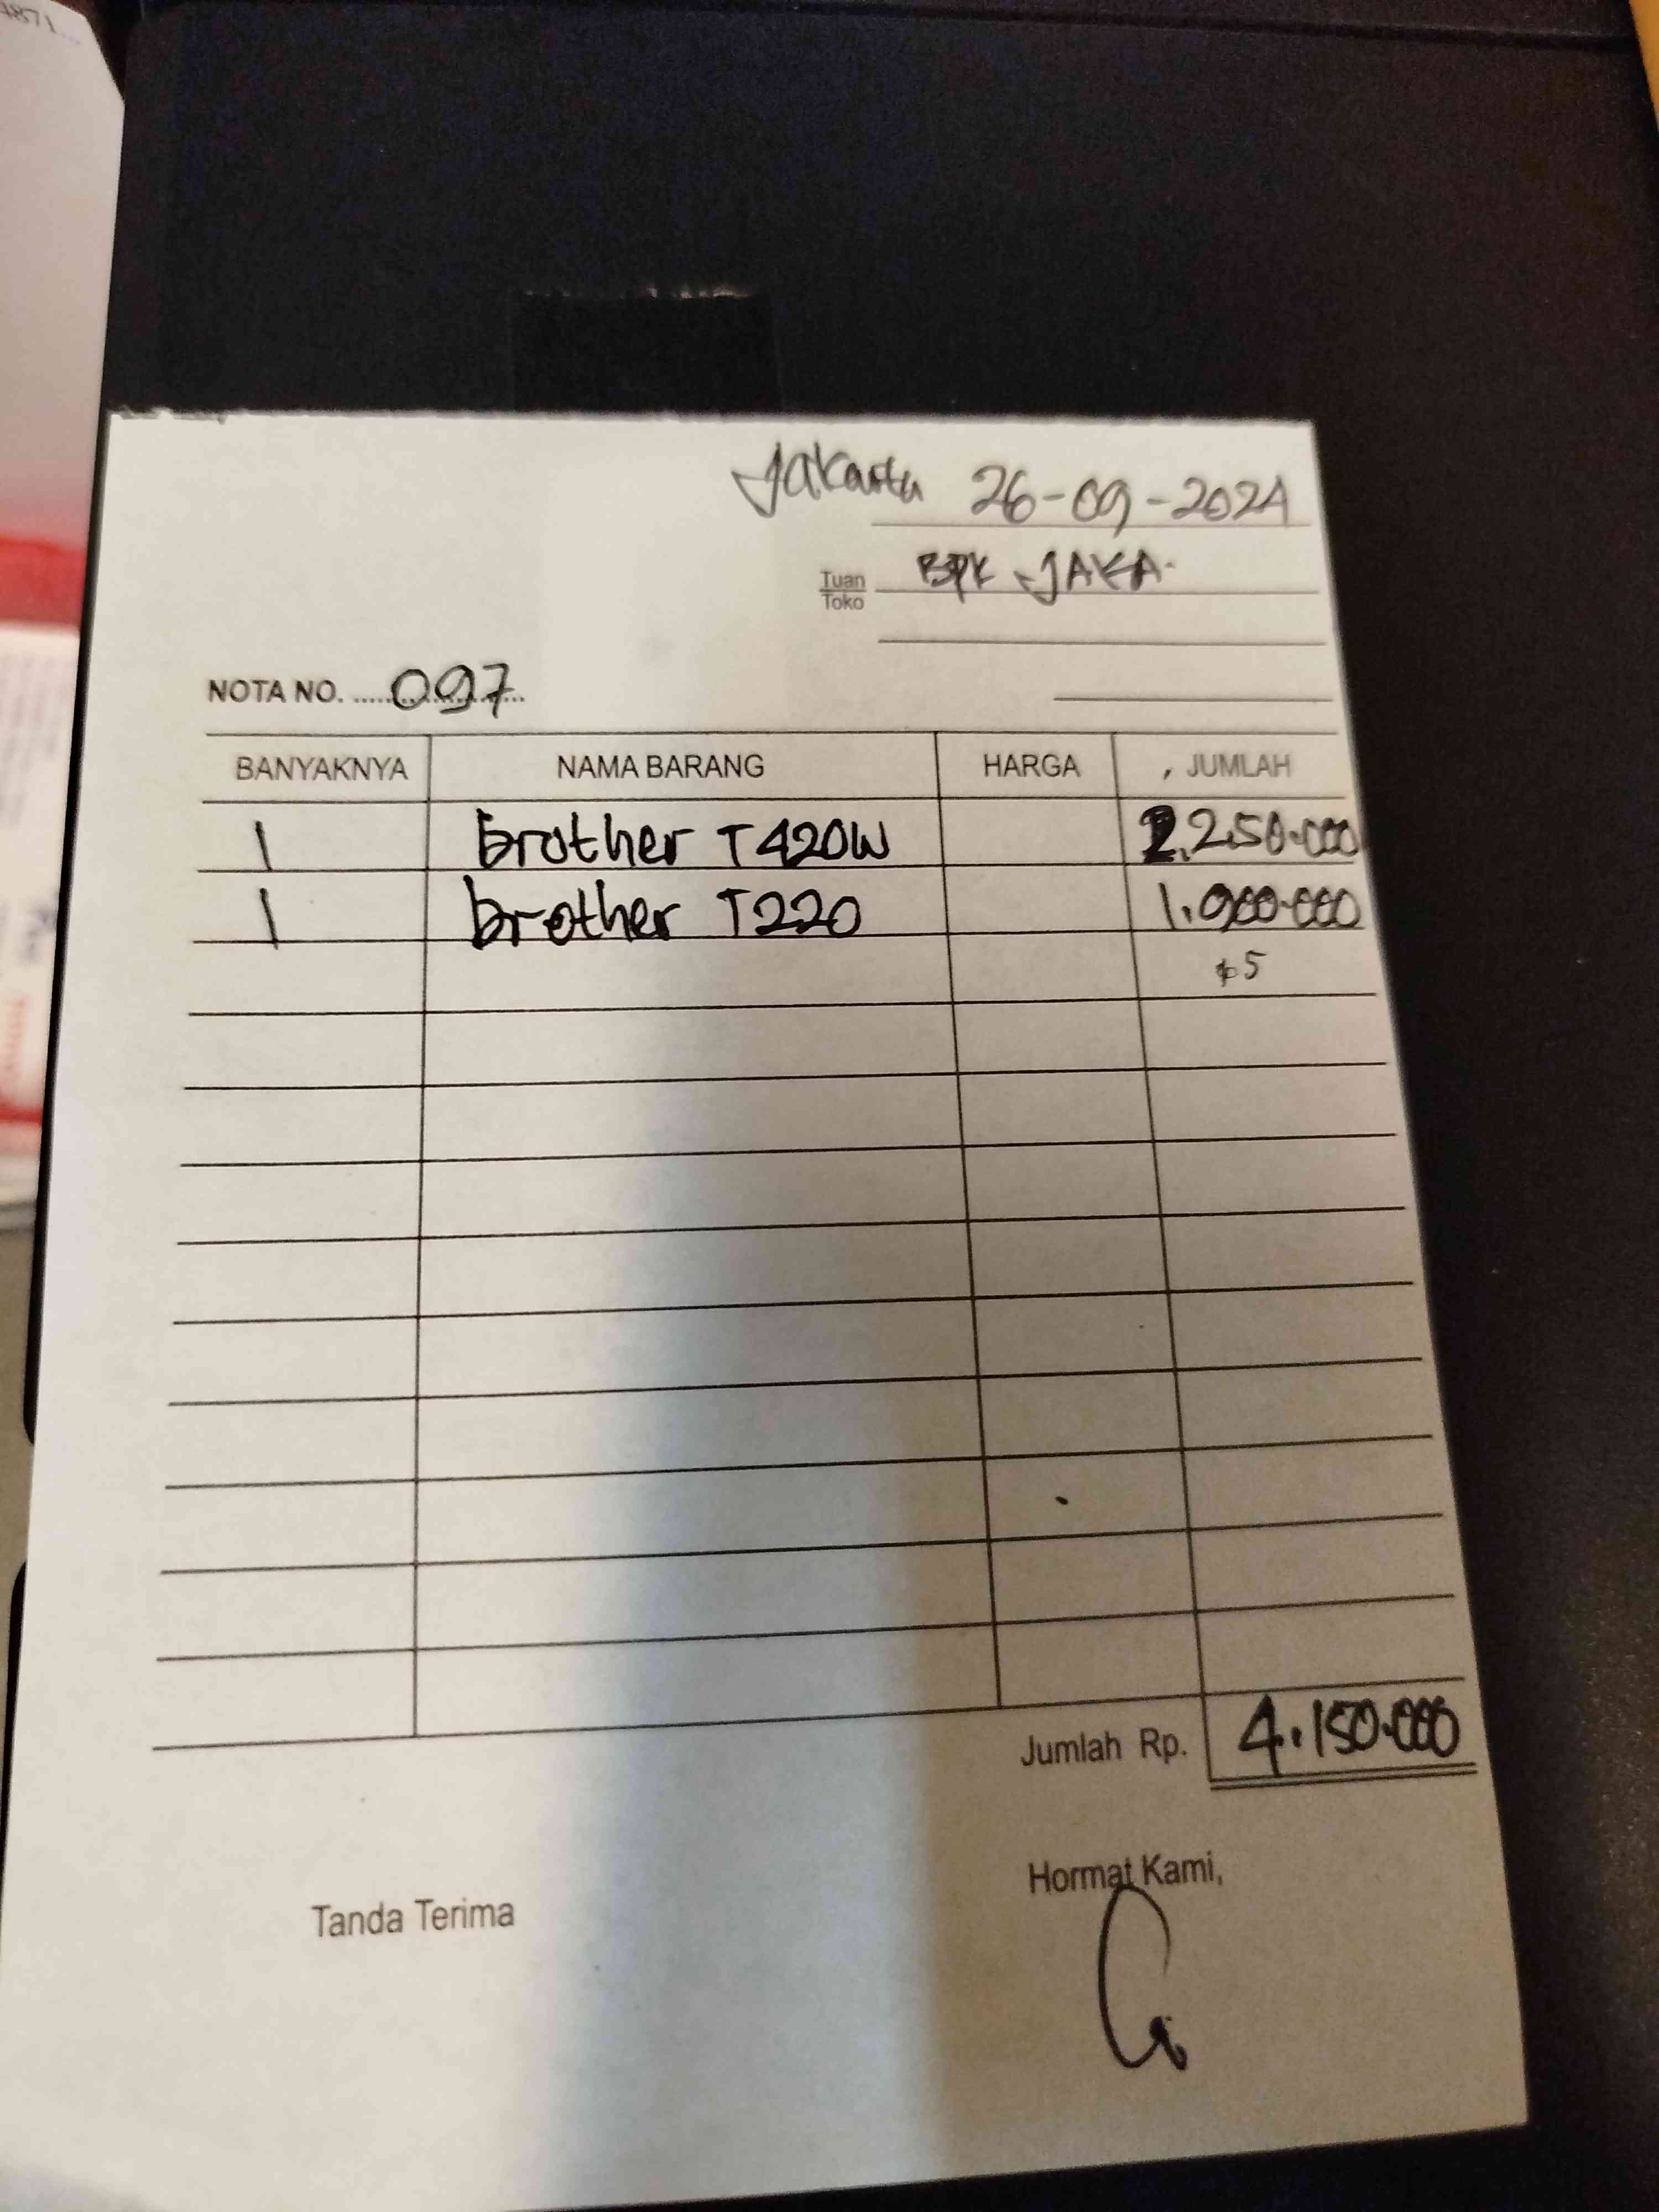 4871
Jakarta 26-09-2024
Tuan BPK JAKA
Toko
NOTA NO. 097
BANYAKNYA NAMA BARANG HARGA , JUMLAH
1 Brother T420W 2.250.000
1 brother T220 1.900.000
5
Jumlah Rp. 4.150.000
Hormat Kami,
Tanda Terima